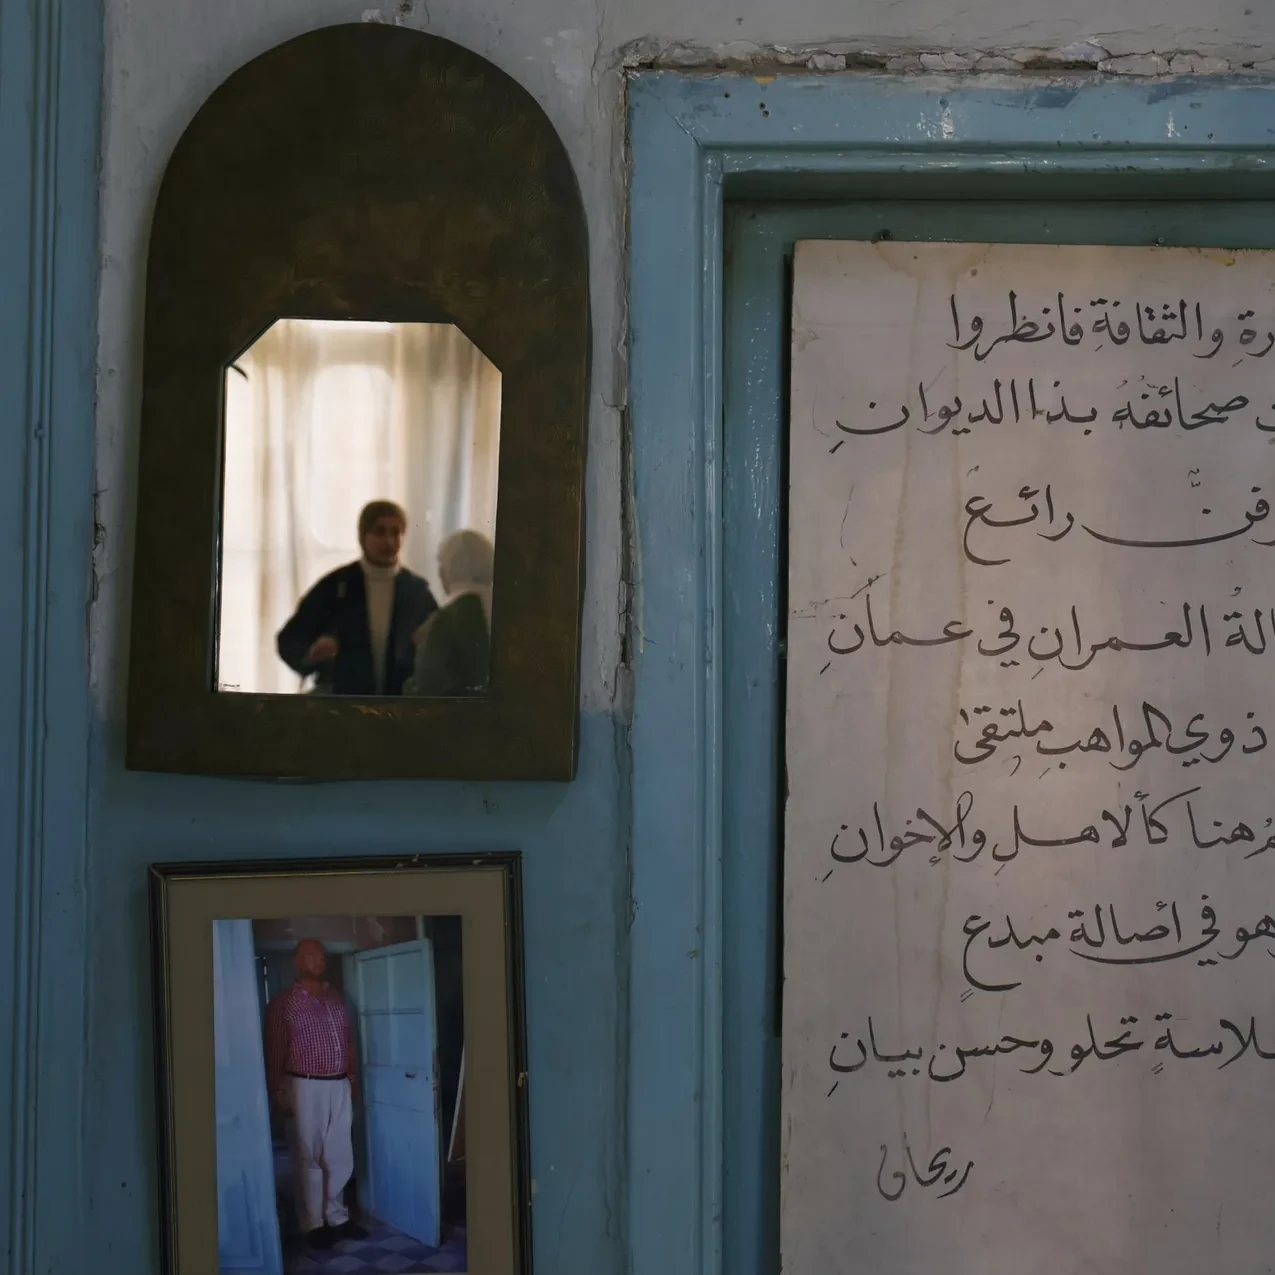 والثقافةِ فانظروا
صحائفُهُ بذا الديوانِ
فنّ رائعٌ
العمرانِ في عمانِ
ذوي المواهبِ ملتقىً
هنا كألاهلِ والإخوانِ
هو في أصالة مبدعٍ
سلاسةٍ تحلو وحسن بيانِ